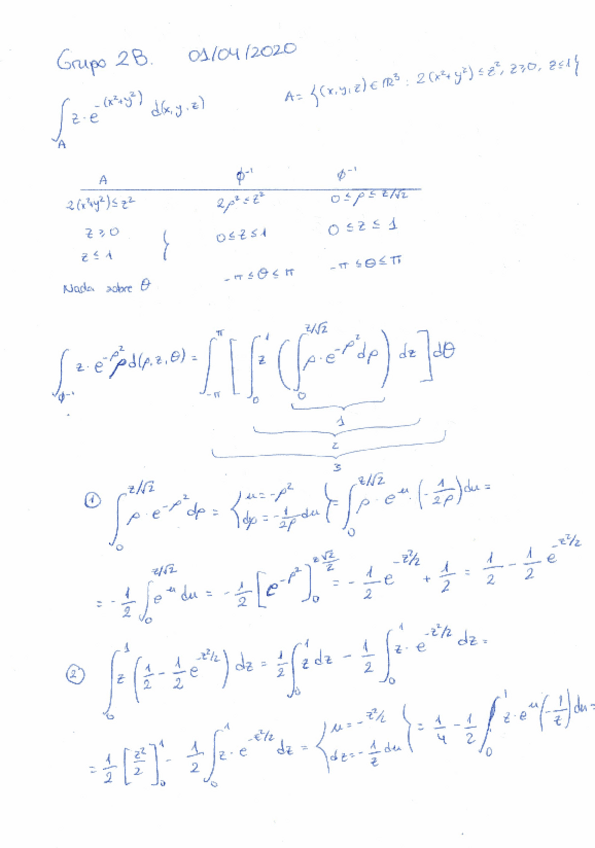 Grupo 2B. 01/04/2020
∫_A z·e^{-(x²+y²)} d(x,y,z) A = {(x,y,z) ∈ ℝ³ : 2(x²+y²) ≤ z², z ≥ 0, z ≤ 1}
A ϕ⁻¹ ϕ⁻¹
2(x²+y²) ≤ z² 2ρ² ≤ z² 0 ≤ ρ ≤ z/√2
z ≥ 0
z ≤ 1 } 0 ≤ z ≤ 1 0 ≤ z ≤ 1
Nada sobre θ -π ≤ θ ≤ π -π ≤ θ ≤ π
∫_{ϕ⁻¹} z·e^{-ρ²} ρ d(ρ,z,θ) = ∫_{-π}^{π} [ ∫_0^1 z ( ∫_0^{z/√2} ρ·e^{-ρ²} dρ ) dz ] dθ
1
2
3
① ∫_0^{z/√2} ρ·e^{-ρ²} dρ = { u = -ρ² dρ = -1/(2ρ) du } = ∫_0^{z/√2} ρ·e^u·(-1/(2ρ)) du =
= -1/2 ∫_0^{z/√2} e^u du = -1/2 [e^{-ρ²}]_0^{z√2/2} = -1/2 e^{-z²/2} + 1/2 = 1/2 - 1/2 e^{-z²/2}
② ∫_0^1 z (1/2 - 1/2 e^{-z²/2}) dz = 1/2 ∫_0^1 z dz - 1/2 ∫_0^1 z·e^{-z²/2} dz =
= 1/2 [z²/2]_0^1 - 1/2 ∫_0^1 z·e^{-z²/2} dz = { u = -z²/2 dz = -1/z du } = 1/4 - 1/2 ∫_0^1 z·e^u (-1/z) du =